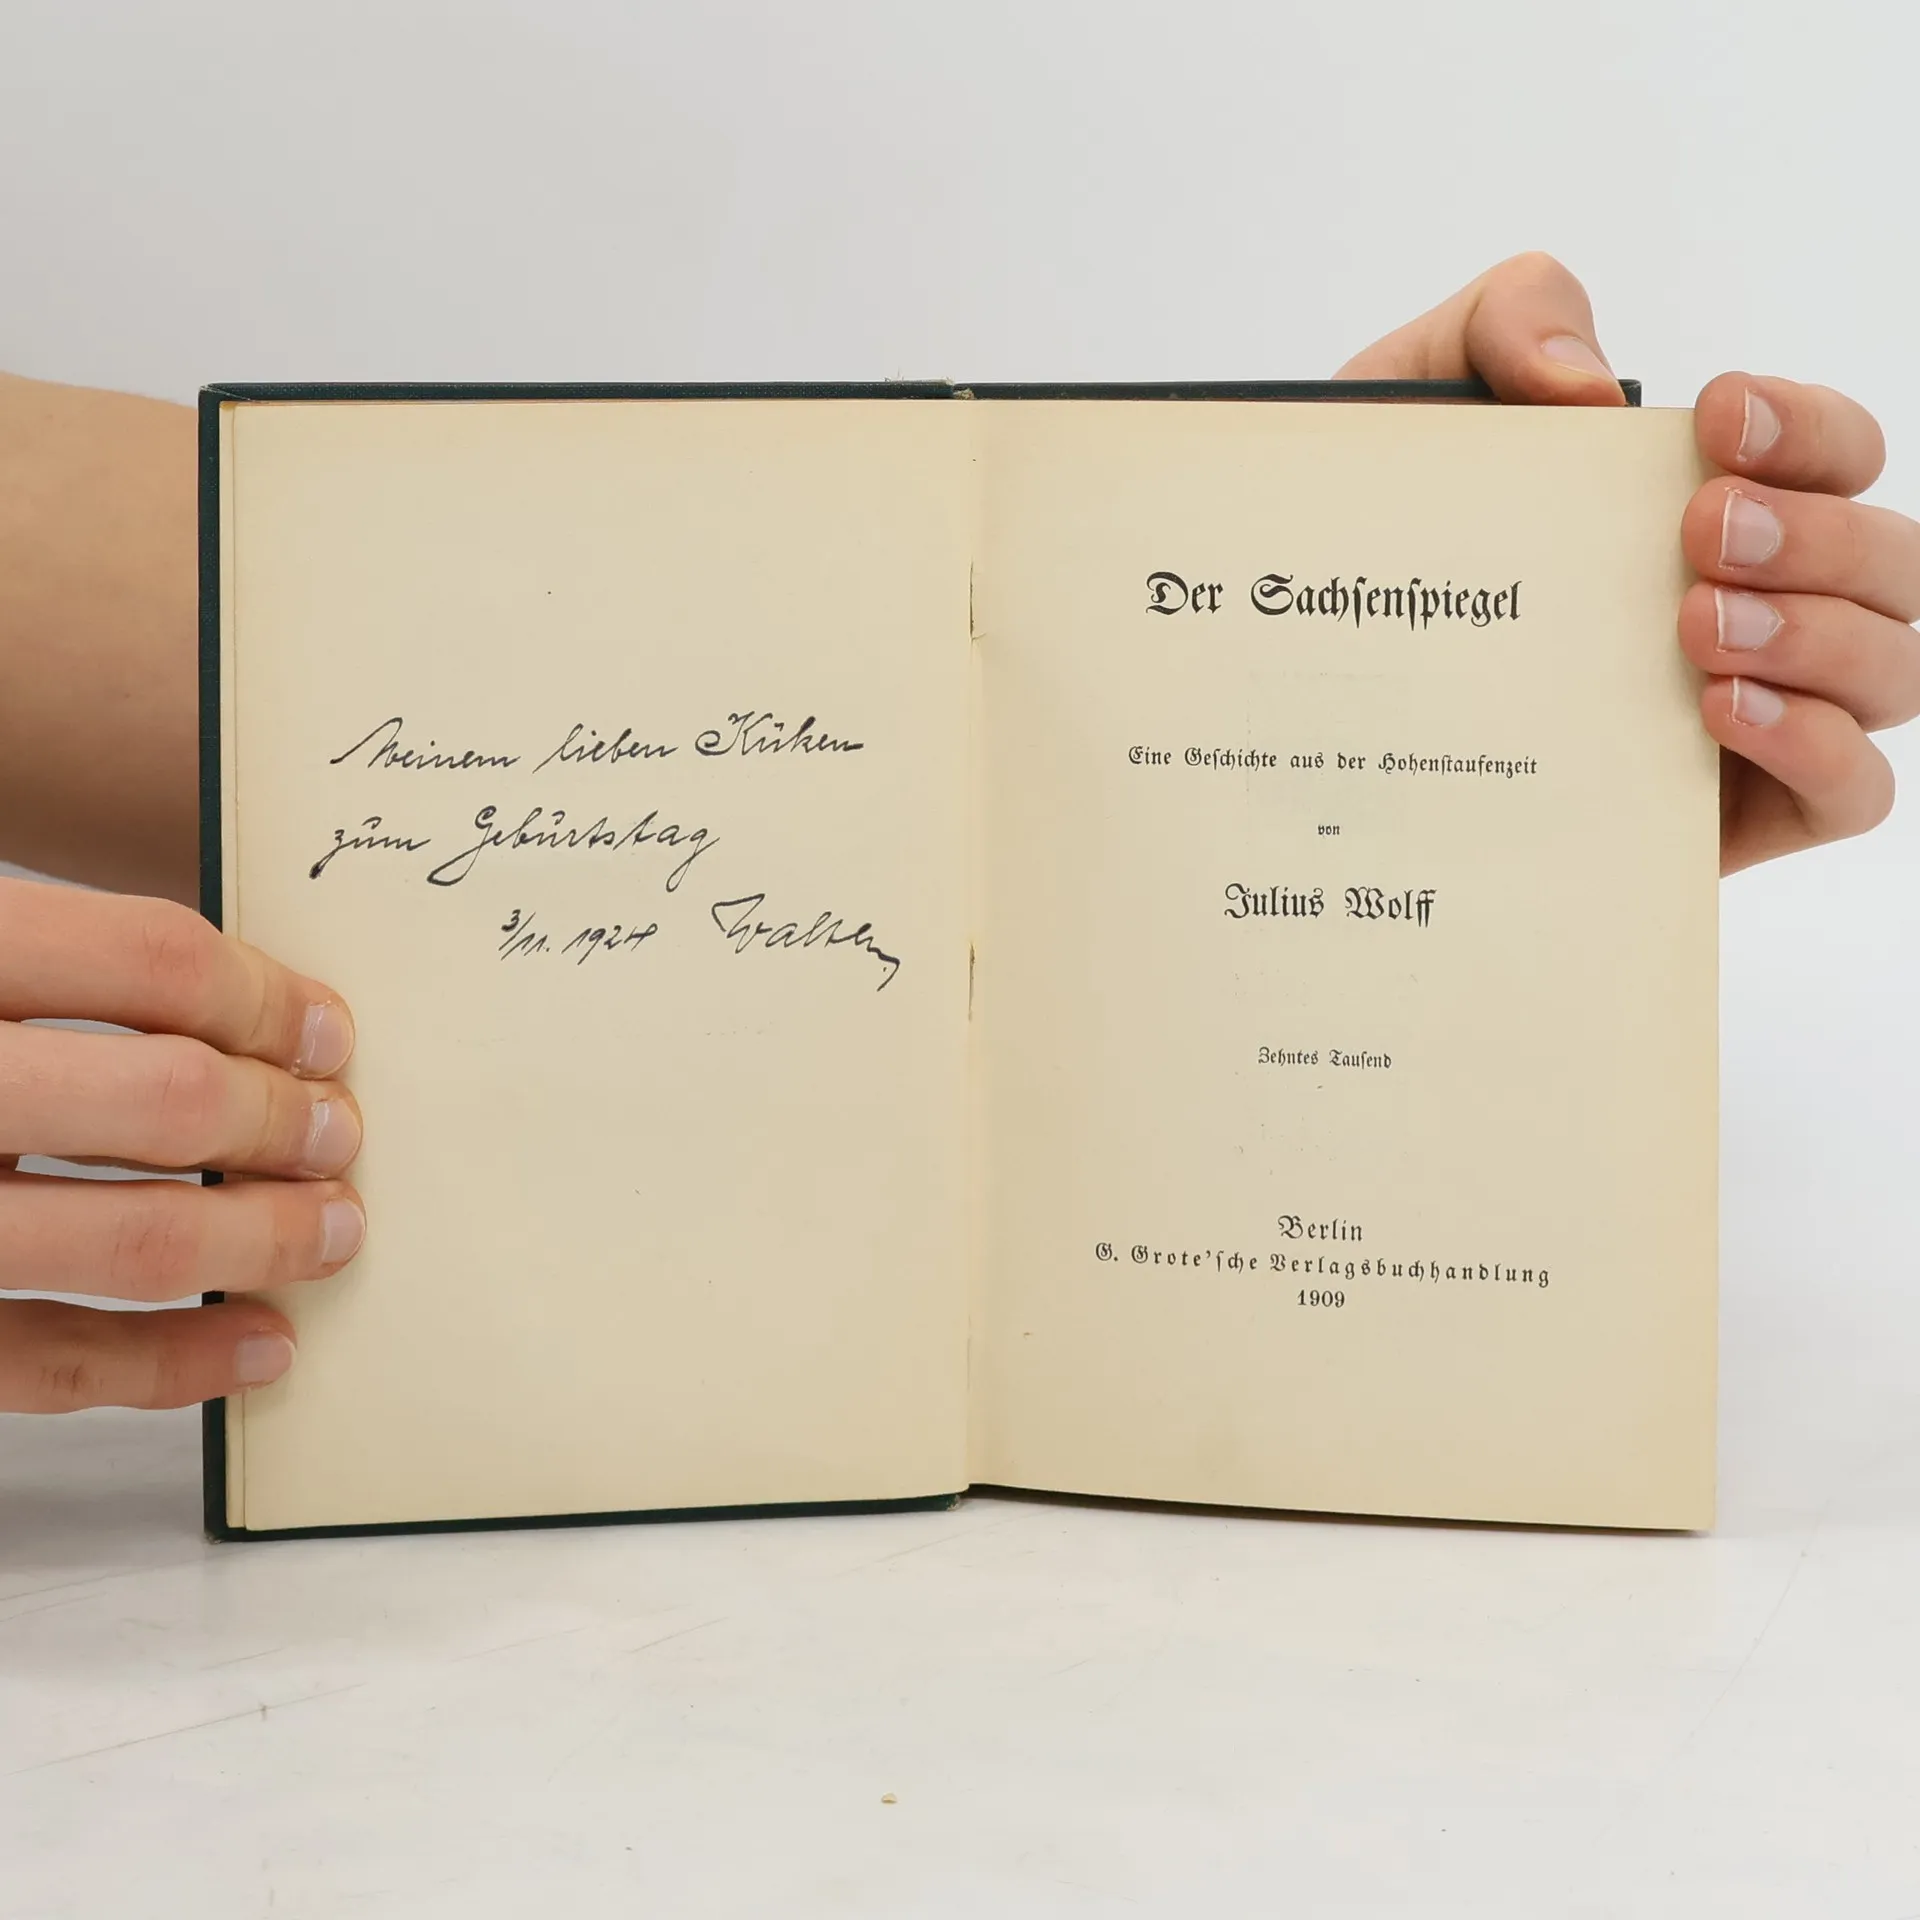 Meinem lieben Küken
zum Geburtstag
3/11. 1924 Walter
Der Sachsenspiegel
Eine Geschichte aus der Hohenstaufenzeit
von
Julius Wolff
Zehntes Tausend
Berlin
G. Grote'sche Verlagsbuchhandlung
1909